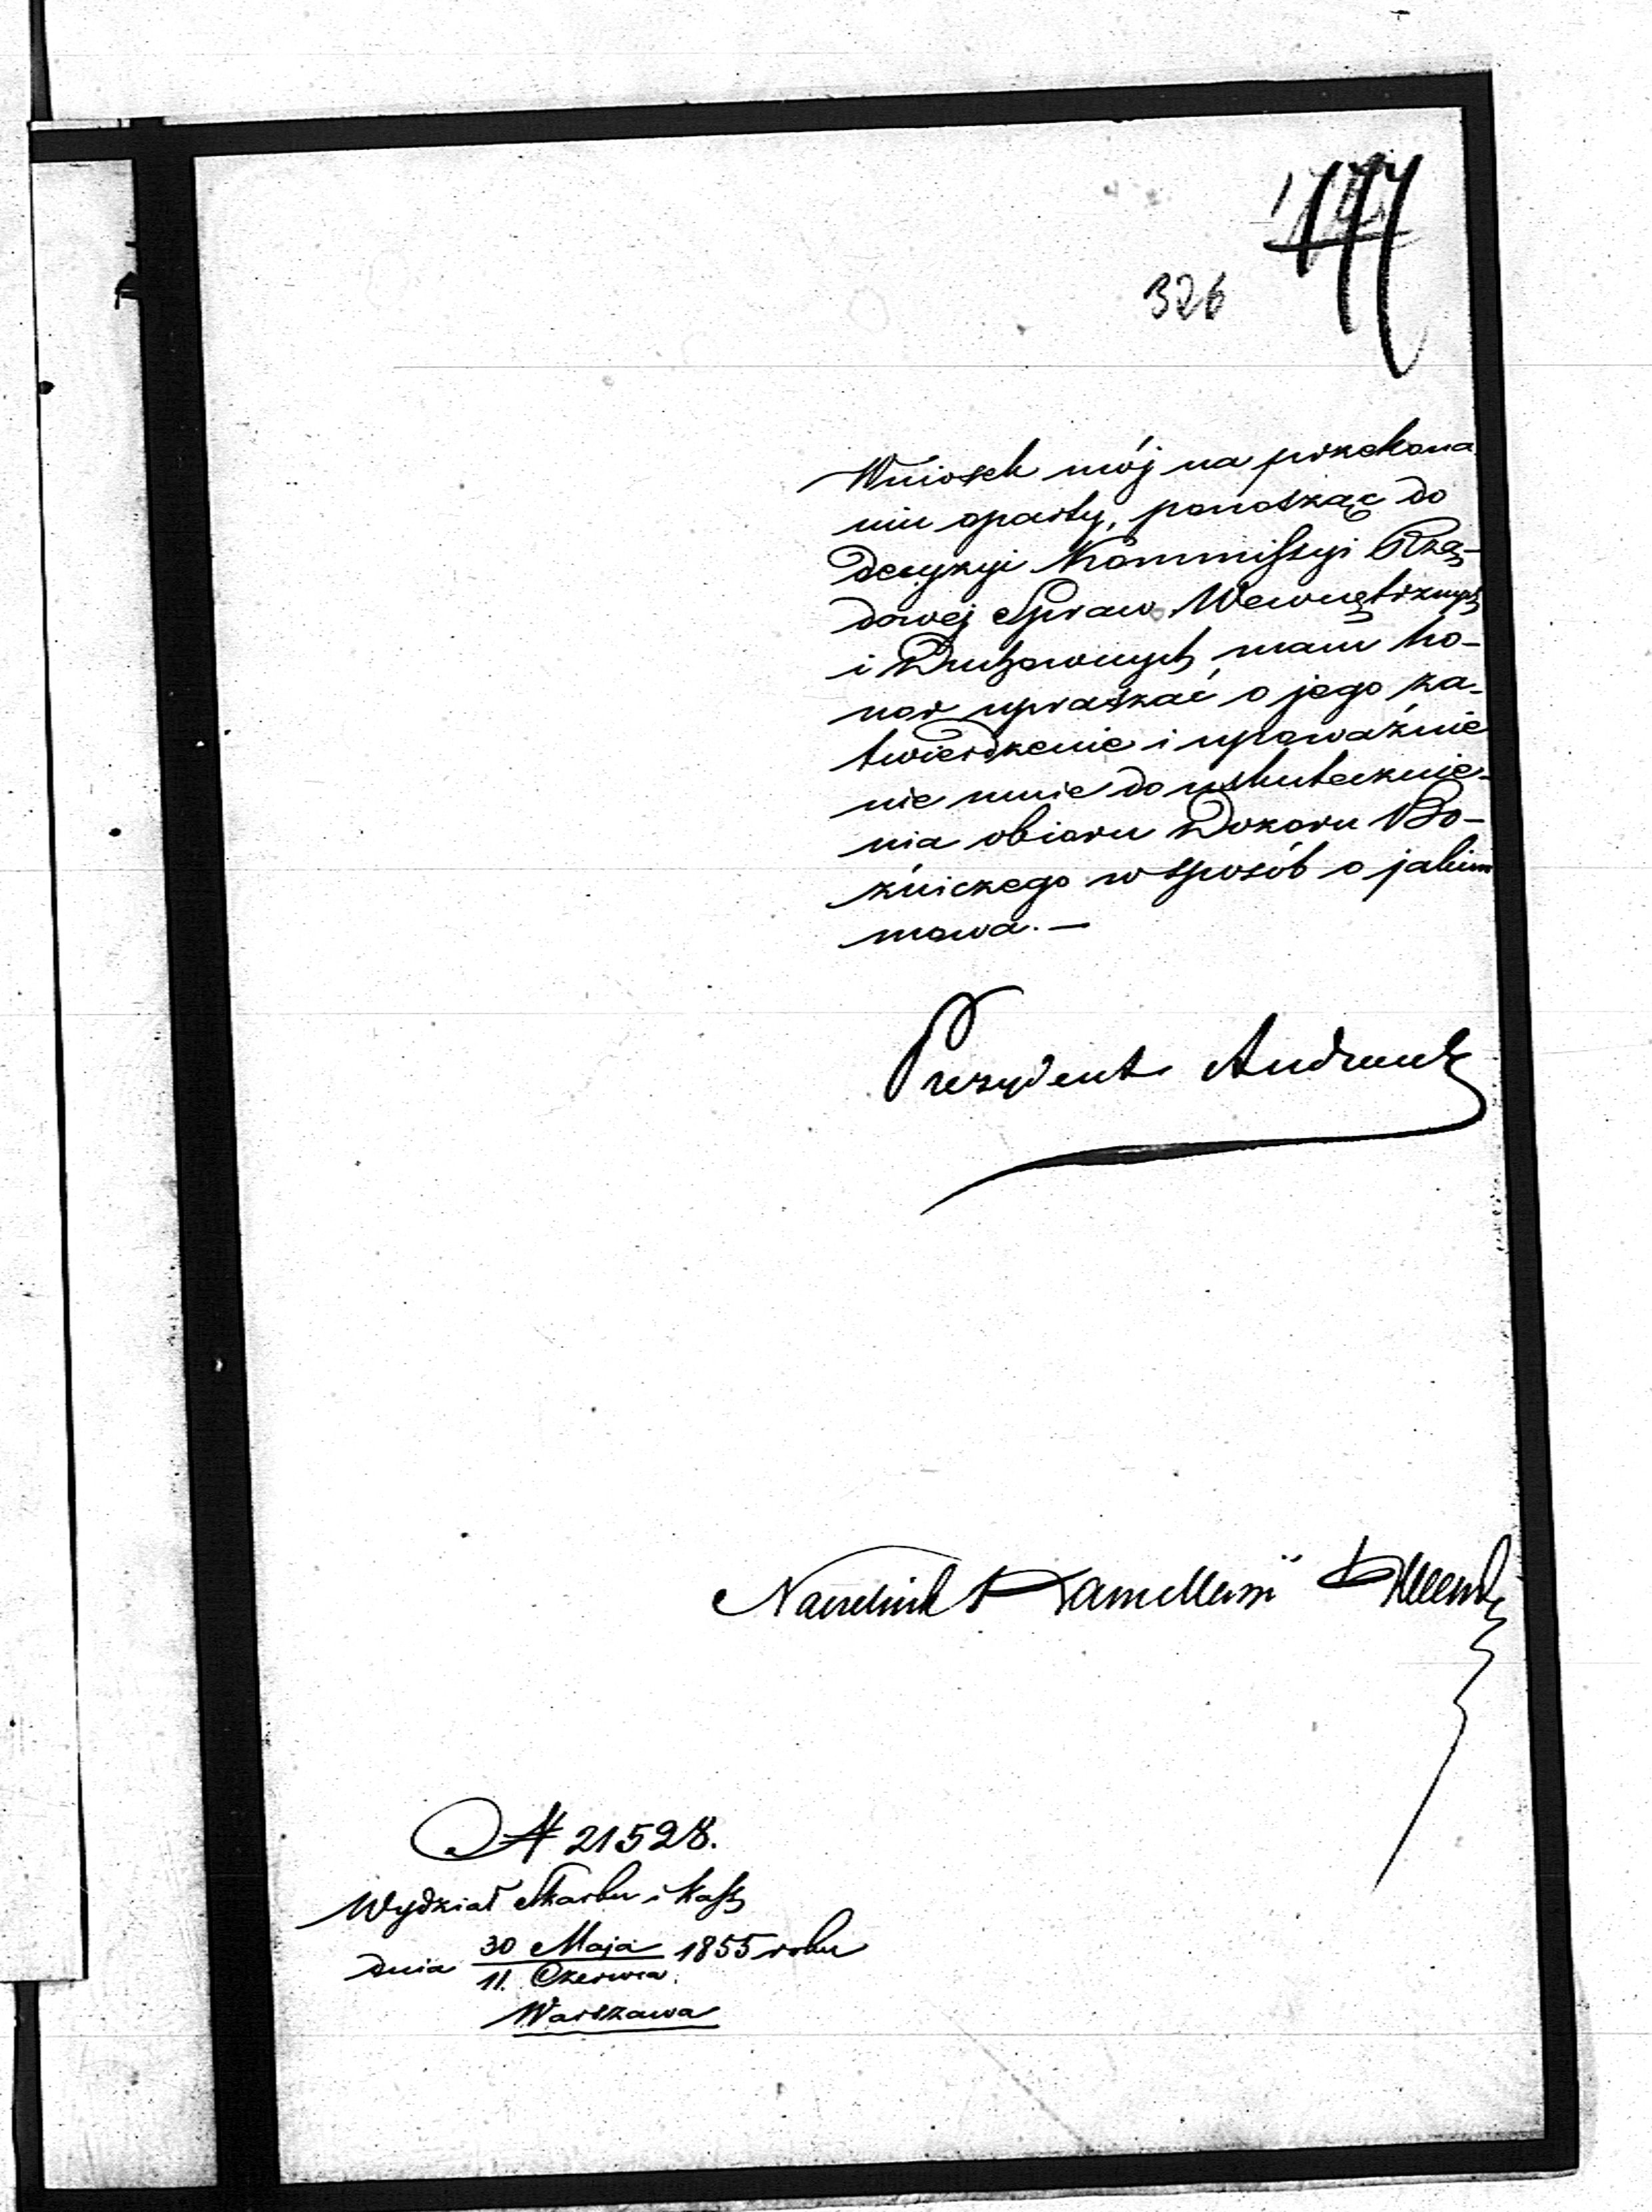 177
326
Wniosek mój na przekona
niu oparty, ponosząc do
decyzyi Kommissyi Rzą-
dowej Spraw Wewnętrznych
i Duchownych mam ho-
nor upraszać o jego za-
twierdzenie i upoważnie
nie mnie do uskutecznie-
nia obioru Dozoru Bo-
źniczego w sposób o jakim
mowa. —
Prezydent Andrault
Naczelnik Kancellaryi
N 21528.
Wydział Skarbu i Kass
dnia 30 Maja 1855 roku
11. Czerwca.
Warszawa